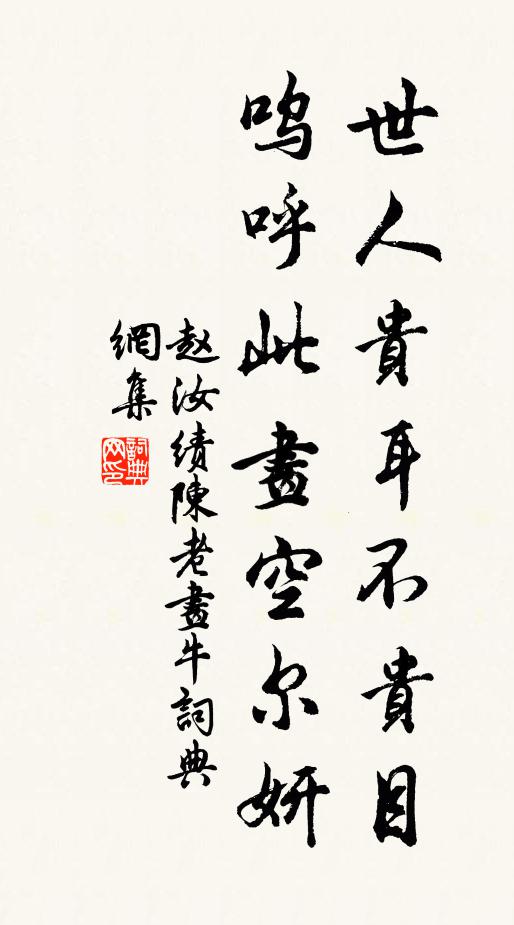 世人貴耳不貴目
嗚呼此畫空尔妍
赵汝績陳老畫牛詞典
網集
詞典
网印